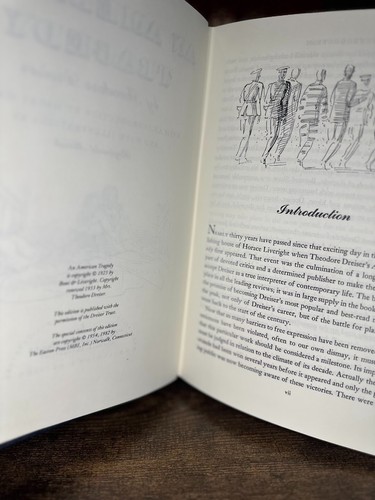 An American Tragedy
is copyright © 1925 by
Boni & Liveright. Copyright
renewed 1953 by Mrs.
Theodore Dreiser
This edition is published with the
permission of the Dreiser Trust.
The special contents of this edition
are copyright © 1954, 1982 by
The Easton Press (MBI, Inc.) Norwalk, Connecticut
Introduction
NEARLY thirty years have passed since that exciting day in the
lishing house of Horace Liveright when Theodore Dreiser's
first appeared. That event was the culmination of a long
part of devoted critics and a determined publisher to make the
Dreiser as a true interpreter of contemporary life. The
place in all the leading reviews, it was large in supply in the book
the promise of becoming Dreiser's most popular and best-read
peak, not only of Dreiser's career, but of the battle for
waged back to the start of the century.
Now that so many barriers to free expression have been removed
some have been violated, often to our own dismay, it must
that this particular work should be considered a milestone. Its
must be judged in relation to the climate of its decade. Actually the
crusade had been won several years before it appeared and only the
public was now becoming aware of these victories. There were
vii